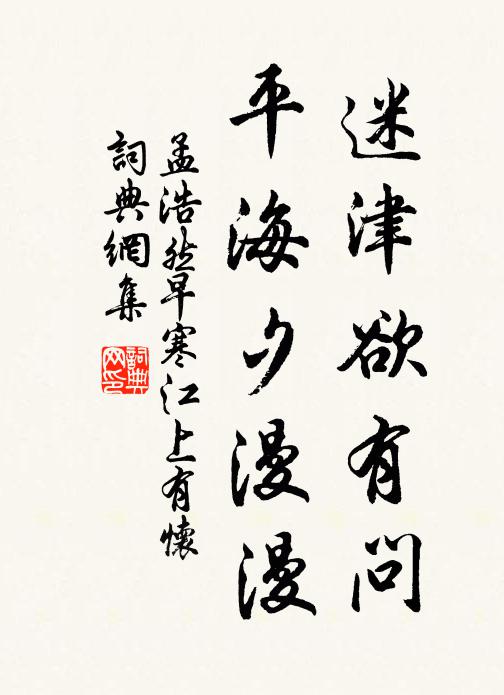 迷津欲有問
平海夕漫漫
孟浩然早寒江上有懷
詞典網集
詞典网印